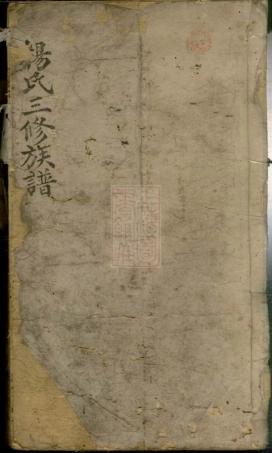 湯氏三修族譜